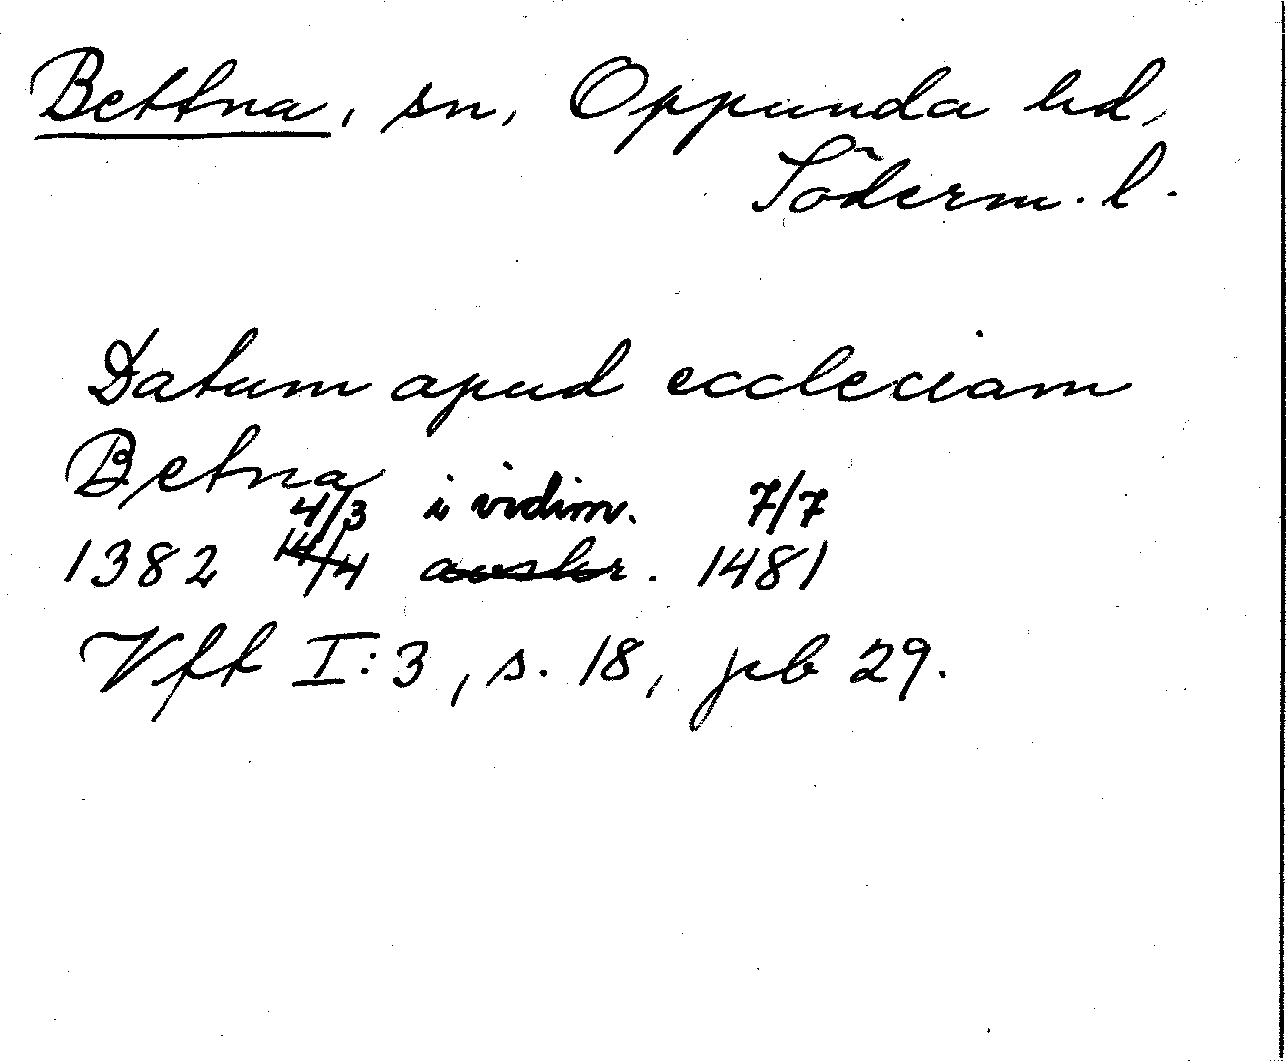 Bettna, sn, Oppunda hd,
Söderm. l.
Datum apud eccleciam
Betna
4/3 i vidim. 7/7
1382 14/4 avskr. 1481
Vft I:3, s. 18, peb 29.